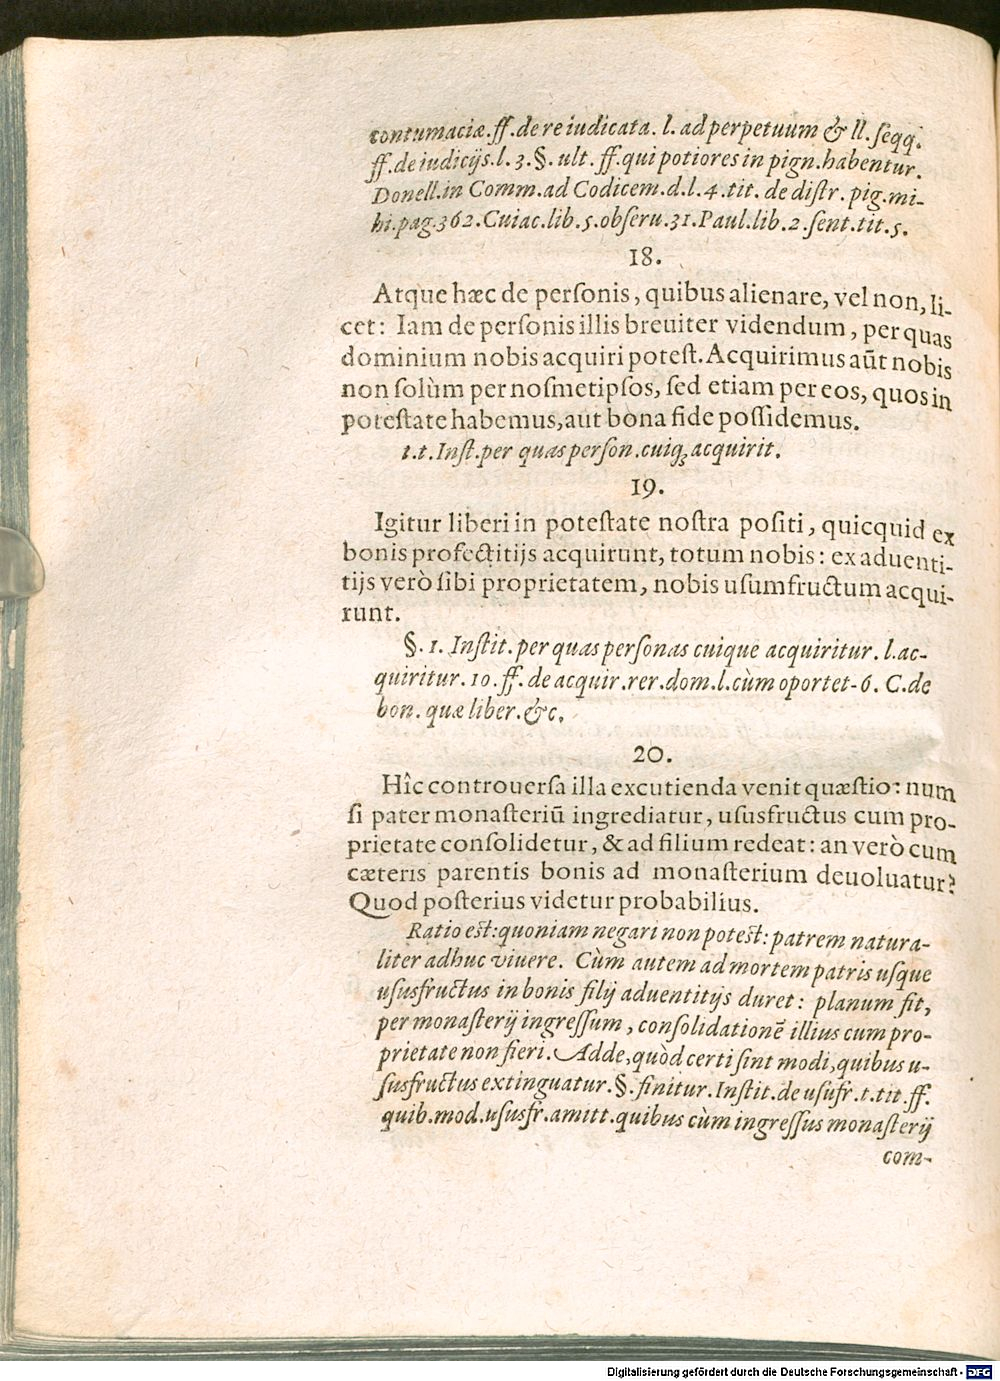 contumaciæ.ff.de re iudicata. l. ad perpetuum & ll. ſeqq.
ff.de iudicijs.l. 3.§. ult. ff.qui potiores in pign.habentur.
Donell.in Comm.ad Codicem.d.l.4.tit. de diſtr. pig.mi-
hi.pag.362.Cuiac.lib.5.obſeru.31.Paul.lib.2.ſent.tit.5.
18.
Atque hæc de perſonis, quibus alienare, vel non, li-
cet: Iam de perſonis illis breuiter videndum, per quas
dominium nobis acquiri poteſt. Acquirimus aũt nobis
non ſolùm per noſmetipſos, ſed etiam per eos, quos in
poteſtate habemus, aut bona fide poſſidemus.
t.t.Inſt.per quas perſon.cuiq; acquirit.
19.
Igitur liberi in poteſtate noſtra poſiti, quicquid ex
bonis profectitijs acquirunt, totum nobis: ex aduenti-
tijs verò ſibi proprietatem, nobis uſumfructum acqui-
runt.
§. 1. Inſtit. per quas perſonas cuique acquiritur. l. ac-
quiritur. 10. ff. de acquir.rer.dom.l.cùm oportet-6. C.de
bon. quæ liber.&c.
20.
Hîc controuerſa illa excutienda venit quæſtio: num
ſi pater monaſteriũ ingrediatur, uſusfructus cum pro-
prietate conſolidetur, & ad filium redeat: an verò cum
cæteris parentis bonis ad monaſterium deuoluatur?
Quod poſterius videtur probabilius.
Ratio eſt: quoniam negari non poteſt: patrem natura-
liter adhuc viuere. Cùm autem ad mortem patris uſque
uſusfructus in bonis filij aduentitijs duret: planum fit,
per monaſterij ingreſſum, conſolidationẽ illius cum pro-
prietate non fieri. Adde, quòd certi ſint modi, quibus u-
ſusfructus extinguatur.§. finitur. Inſtit. de uſufr. t.tit.ff.
quib.mod.uſusfr.amitt.quibus cùm ingreſſus monaſterij
com-
Digitalisierung gefördert durch die Deutsche Forschungsgemeinschaft - DFG